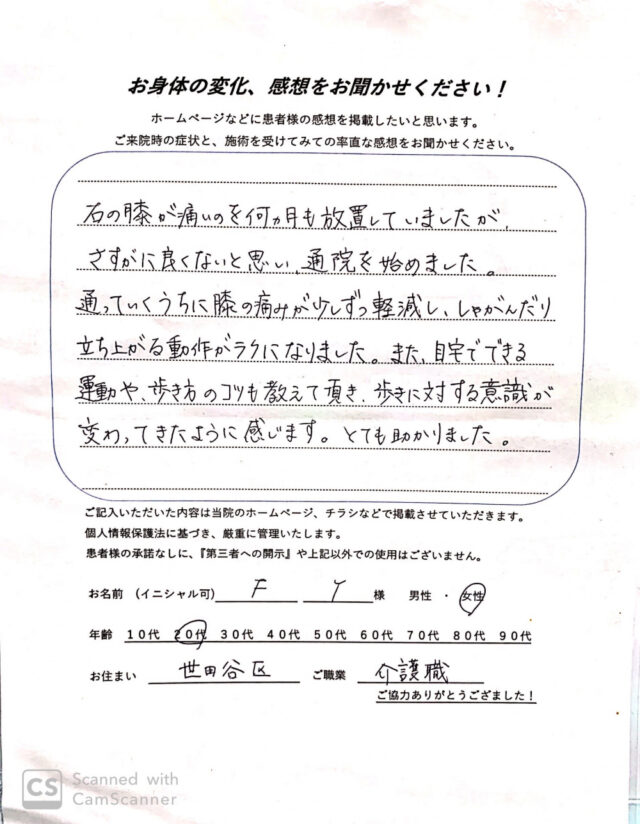 お身体の変化、感想をお聞かせください！
ホームページなどに患者様の感想を掲載したいと思います。
ご来院時の症状と、施術を受けてみての率直な感想をお聞かせください。
右の膝が痛いのを何ヵ月も放置していましたが、
さすがに良くないと思い、通院を始めました。
通っていくうちに膝の痛みが少しずつ軽減し、しゃがんだり
立ち上がる動作がラクになりました。また、自宅でできる
運動や、歩き方のコツも教えて頂き、歩きに対する意識が
変わってきたように感じます。とても助かりました。
ご記入いただいた内容は当院のホームページ、チラシなどで掲載させていただきます。
個人情報保護法に基づき、厳重に管理いたします。
患者様の承諾なしに、『第三者への開示』や上記以外での使用はございません。
お名前 (イニシャル可) F Y 様 男性 ・ 女性
年齢 10代 20代 30代 40代 50代 60代 70代 80代 90代
お住まい 世田谷区 ご職業 介護職
ご協力ありがとうござました！
CS Scanned with
CamScanner